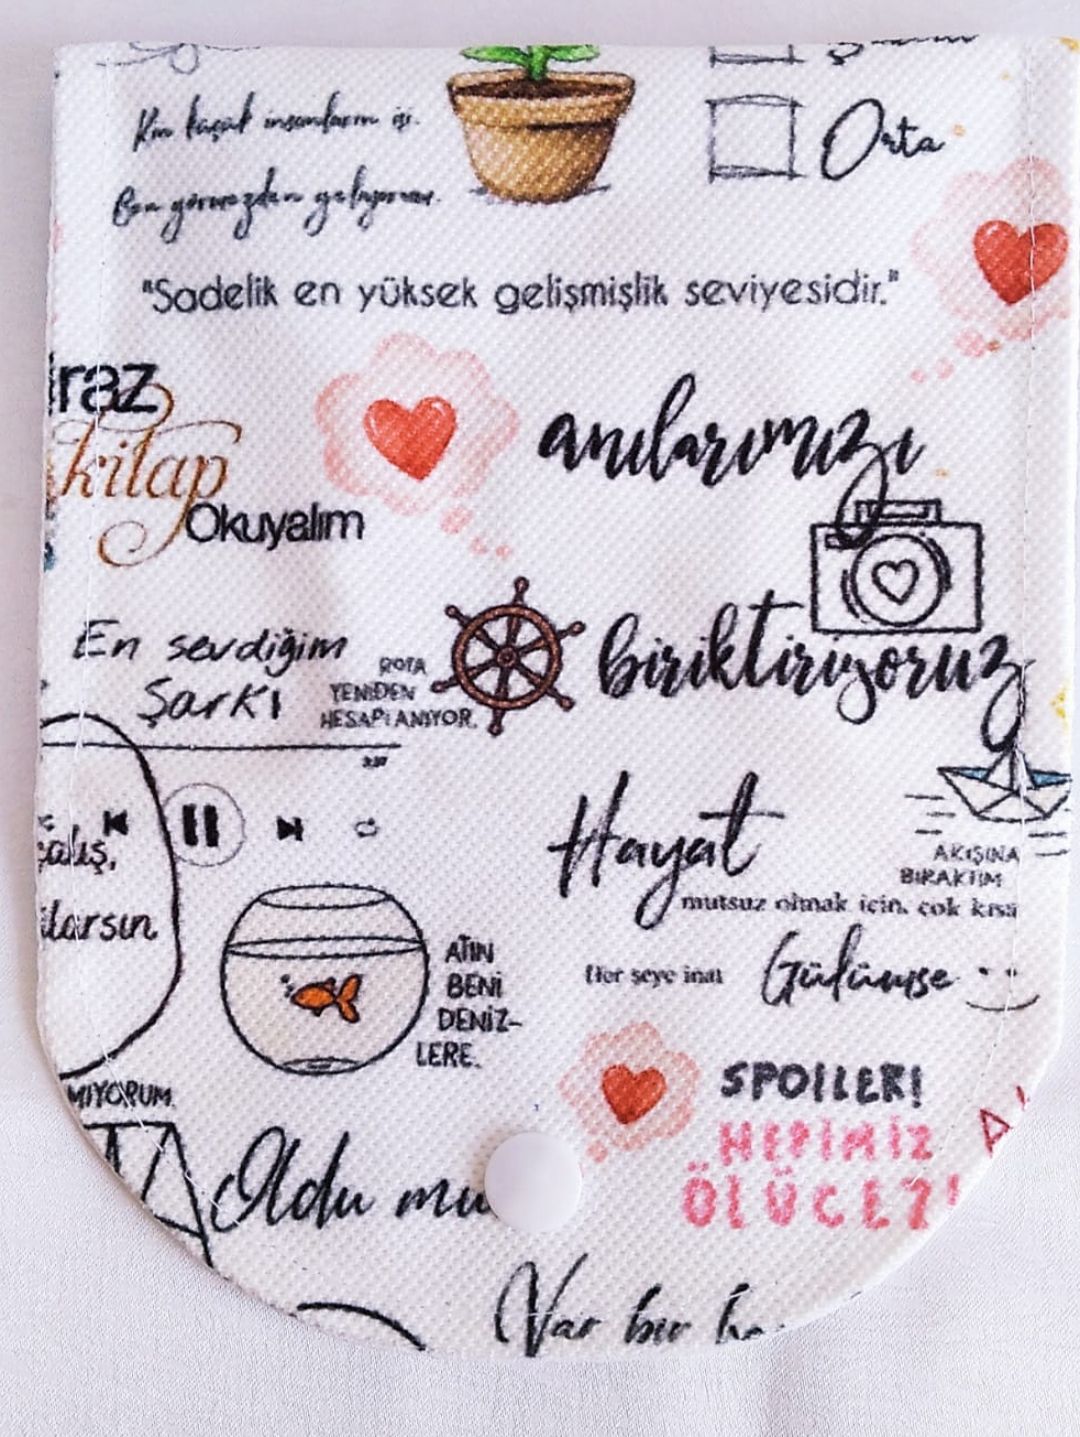 Orta
"Sadelik en yüksek gelişmişlik seviyesidir."
iraz
kitap
Okuyalım
anılarımızı
biriktiriyoruz
En sevdiğim
Şarkı
ROTA
YENİDEN
HESAPLANIYOR.
çalış,
ılarsın
Hayat
mutsuz olmak için, çok kısa
AKIŞINA
BIRAKTIM
Her şeye inat
Gülümse
ATIN
BENİ
DENİZ-
LERE.
SPOILER!
HEPİMİZ
ÖLÜCEZ!
MIYORUM.
Oldu mu
Var bir